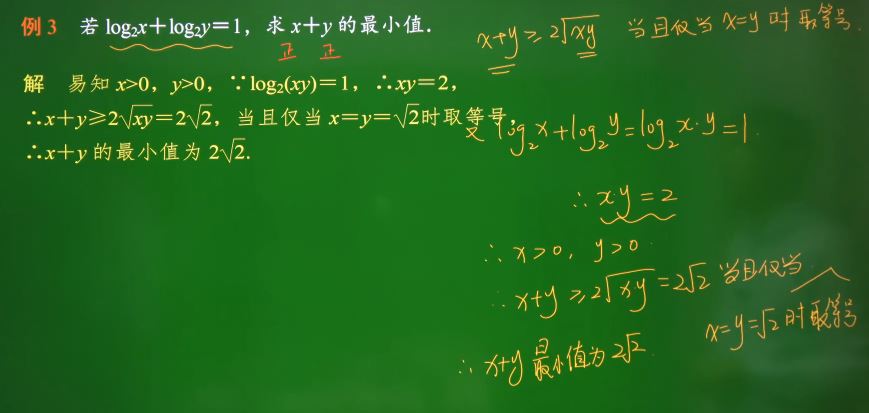 例3 若 log₂x+log₂y=1，求 x+y 的最小值.
正 正
解 易知 x>0，y>0，∵log₂(xy)=1，∴xy=2，
∴x+y≥2√xy=2√2，当且仅当 x=y=√2时取等号，
∴x+y 的最小值为 2√2.
x+y≥2√xy 当且仅当 x=y 时 取等号.
又 log₂x+log₂y=log₂x·y=1.
∴x·y=2
∵x>0，y>0.
∴x+y≥2√xy=2√2 当且仅当
x=y=√2时取等号
∴x+y 最小值为 2√2.